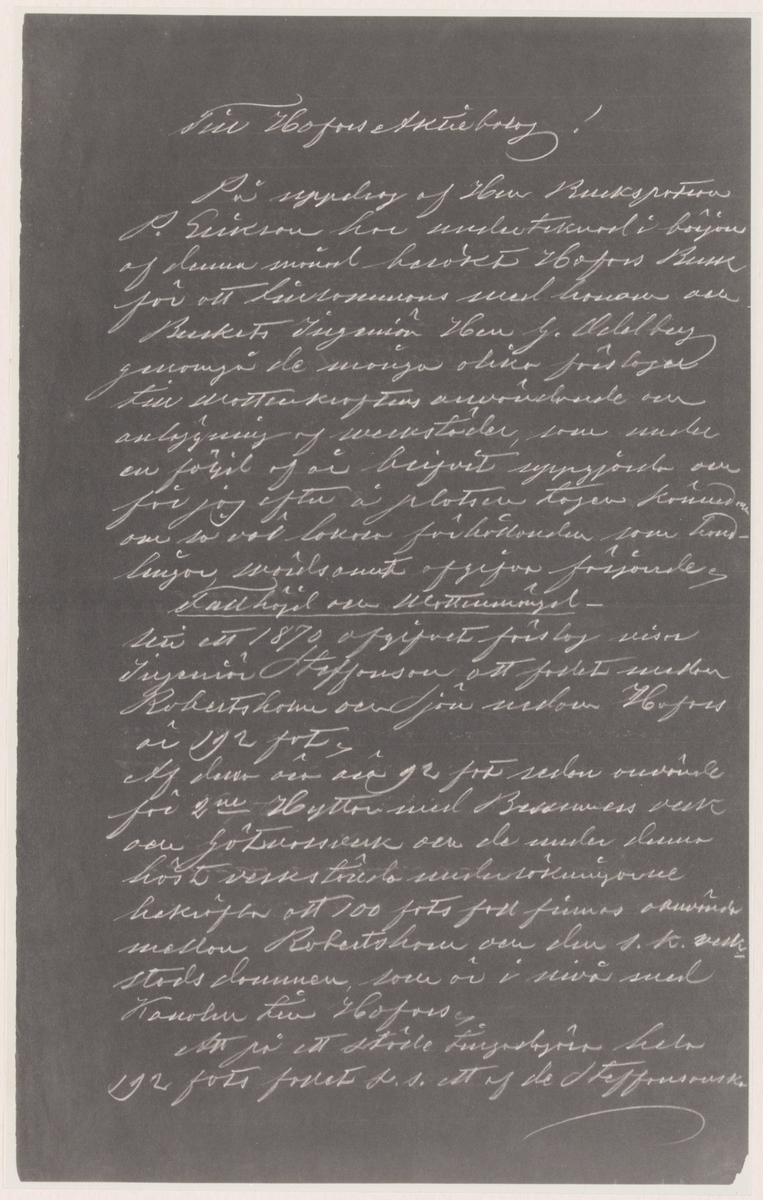 Till Hofors Aktiebolag!
På uppdrag af Herr Brukspatron
P. Erikson har undertecknad i början
af denna månad besökt Hofors Bruk
för att tillsammans med honom och
Brukets Ingeniör Herr G. Odelberg
genomgå de många olika förslager
till Wattenkraftens användande och
anläggning af werkstäder, som under
en följd af år blifvit uppgjorda och
får jag efter å platsen tagen kännedom
om så väl lokala förhållanden som hand-
lingar, wördsamt afgifva följande,
Fallhöjd och Wattenmängd –
Uti ett 1870 afgifvet förslag visar
Ingeniör Steffanson att fallet mellan
Robertsholm och Sjön nedom Hofors
är 192 fot,
Af dem äro ca 92 fot redan använde
för 2ne Hyttor med Bessemers verk
och Götvalsverk och de under denna
höst verkstälda undersökningarne
bekräfta att 100 fots fall finnas oanvända
mellan Robertsholm och den s. k. verk-
stads dammen, som är i nivå med
Kanalen till Hofors,
Att på ett ställe tillgodogöra hela
192 fots fallet d. s. ett af de Steffansonska